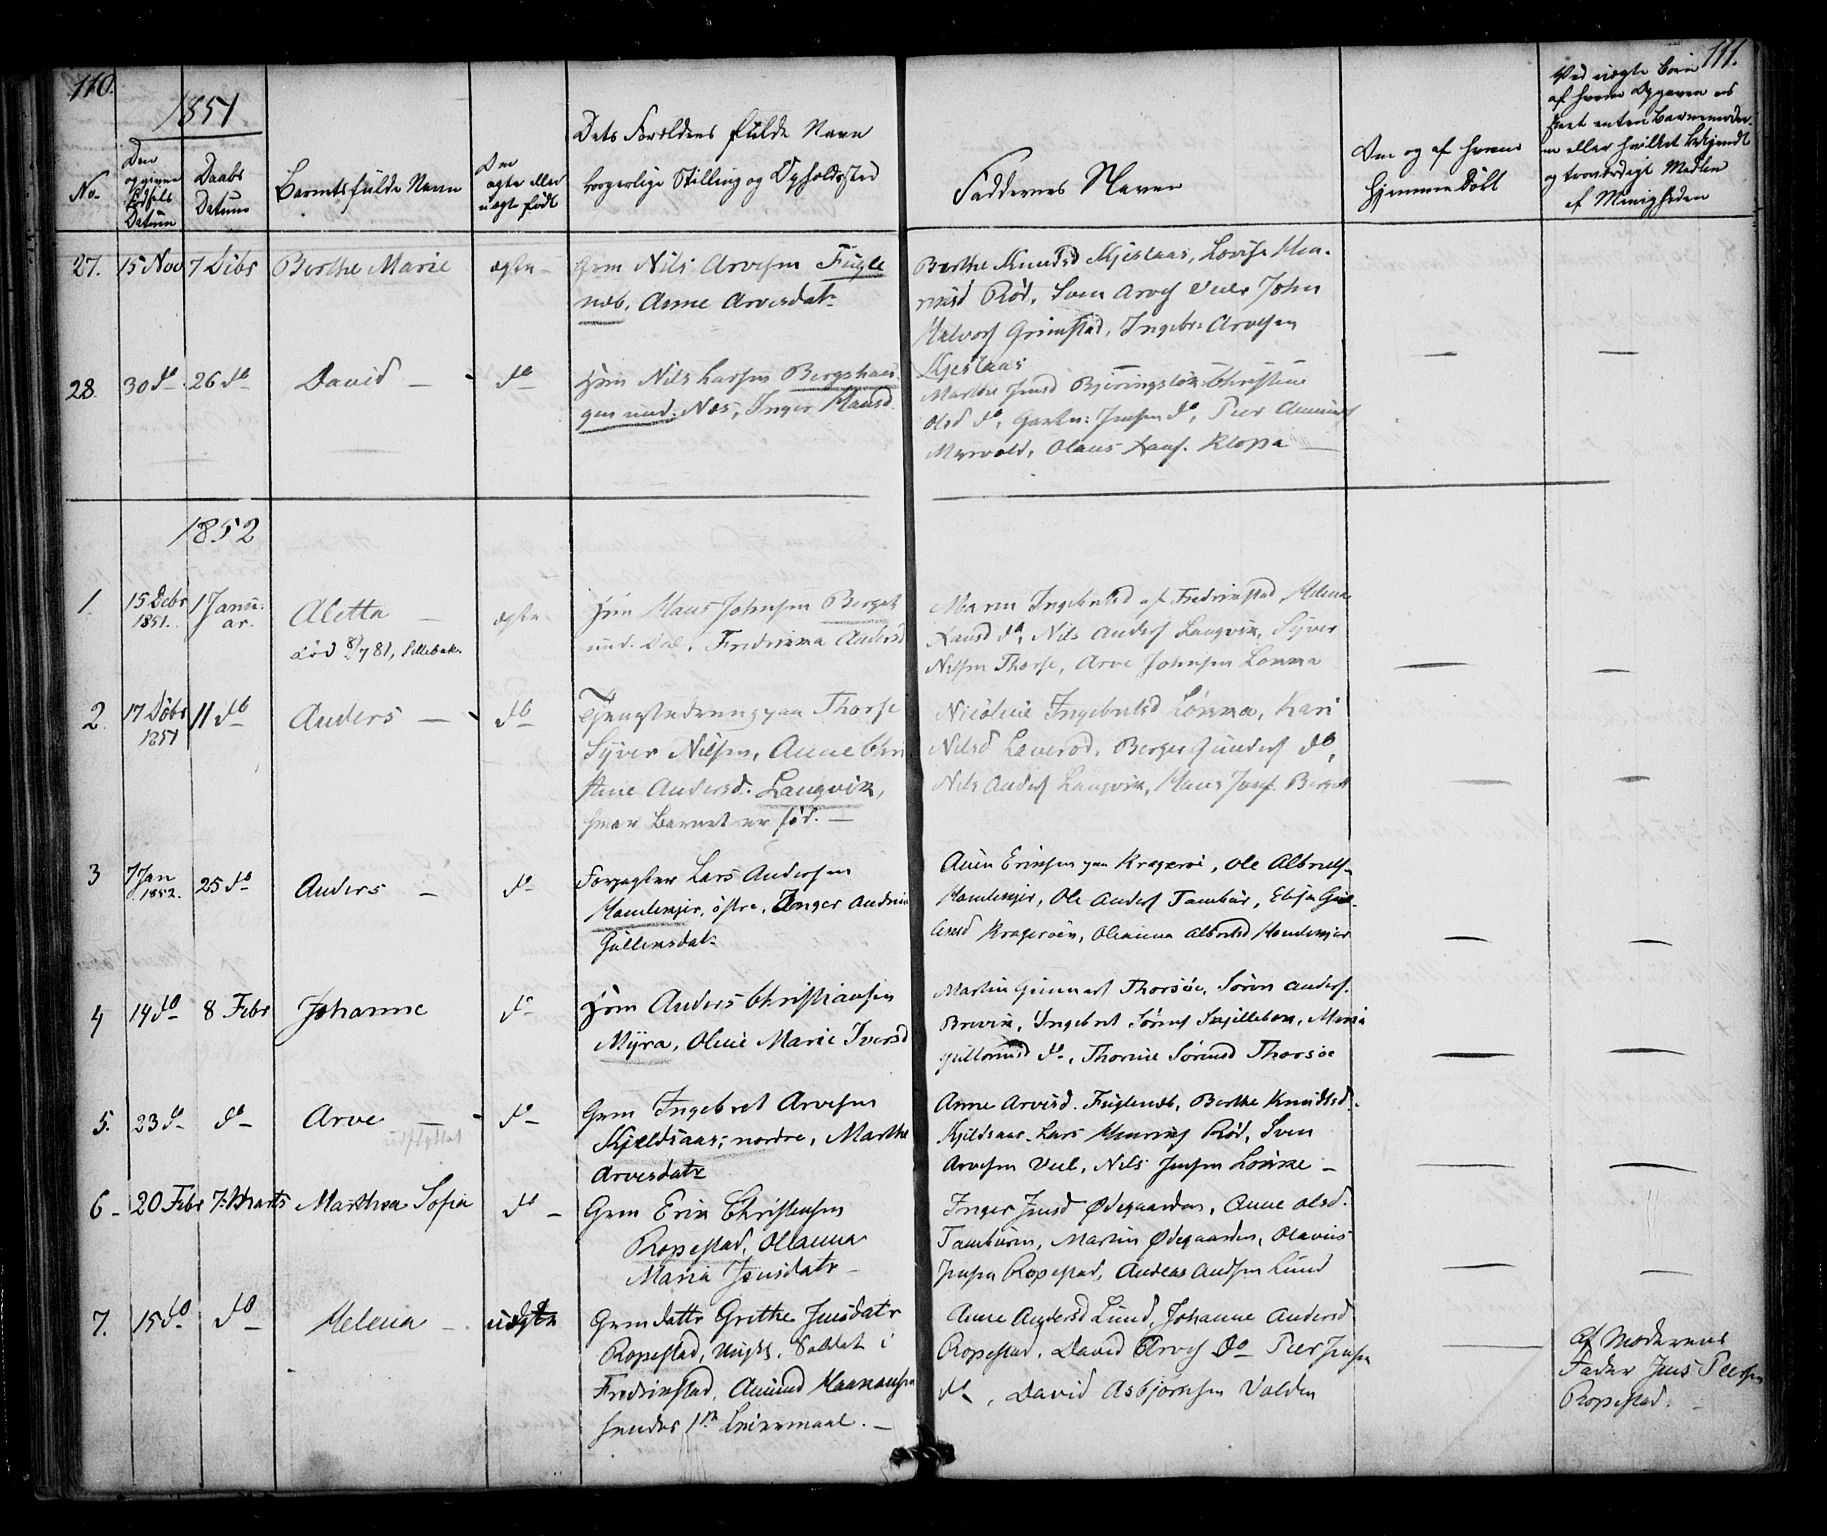 110.
111.
1851
No.
Den opgivne Fødsels Datum
Daabs Datum
Barnets fulde Navn
Om ægte eller uægte født
Dets Forældres fulde Navn
borgerlige Stilling og Opholdssted
Faddernes Navne
Om og af hvem
hjemmedøbt
Ved uægte Børn
af hvem Opgaven er
skeet enten Barnemoder
en eller hvilket bekjendt
og troværdigt Medlem
af Menigheden
27. 15 Nov 7 Debr Berthe Marie ægte –
Grm Nils Arvesen Fugle
næb, Anne Arvesdatr
Berthe Knudsd Kjeslaas, Lovise Hen-
riksd Rød, Sven Arves Veel, John
Halvors Grimstad, Ingebr: Arvesen
Kjeslaas
28. 30 do 26 do David – do
Hsm Nils Larsen Bergshau
gen und: Næs, Inger Hansd.
Marthe Jensd Bjerringsløk, Christine
Olsd do, Jensen do, Peer Amunds
Myrvold, Olaus Hans. Klopa –
1852
1. 15 Debr 1851. 1 Janu:ar. Aletta – ægte
død 8/7 81, Lillebæk.
Hsm Hans Johnsen Berget
und. Dal, Fredrikka Andersd
Maren Ingebretsd af Fredrikstad, Helene
Hansd do, Nils Anders Langvik, Syver
Nilsen Thorse, Arve Johnsen Lønna
2. 17 Debr 1851 11 do Anders – do
Thorse
Syver Nilsen, Anne Chri
stine Andersd. Langvik,
hvor Barnet er fød. –
Nicoline Ingebretsd Lønna, Kari
Nilsd Laverød, Berger Gunders do,
Nils Anders Langvik, Hans Johns. Berget
3 7 Jan 1852. 25 do Anders – do
Forpagter Lars Andersen
Hamlenjer, østre, Inger Andrine
Gullensdatr
Auen Eriksen paa Kragerøe, Ole Albretse-
Hamlenjer, Ole Anders Tambur, Ebja Gul-
lensd Kragerøen, Oleanna Albretsd Hamlenjer
4 14 do 8 Febr Johanne do
Hsm Anders Christiansen
Myra, Oline Marie Iversd
Martin Gunners Thorsøe, Søren Anders.
Brevik, Ingebret Sørens Skjillebek, Maria
Gulbrandsd do, Thorine Sørensd Thorsøe
5. 23 do do Arve – do
udflyttet
Grm Ingebret Arvesen
Kjældsaas; nordre, Marthe
Arvesdatr
Anne Arvesd. Fuglenæb, Berthe Knudsd.
Kjeldsaas, Lars Henriks Rød, Sven
Arvesen Veel, Nils Jensen Lønne –
6 – 20 Febr 7. Marts Marthea Sofia do –
Grm Erik Christensen
Ropestad, Olianna
Maria Jensdatr –
Inger Jensd Ødegaarden, Anne Olsd.
Tamburen, Martin Ødegaarden, Olavus
Jensen Ropestad, Andeas Andsen Lund
7. 15 do do Helena – uægte
Grmdattr Grethe Jensdatr
Ropestad, Ungk. Soldat i
Fredrikstad, Amund Haakansen
hendes 1ste Leiermaal. –
Anne Andersd Lund, Johanne Andersd
Ropestad, David Arves do Peer Jensen
do, David Asbjørnsen Valden
Af Moderens
Fader Jens Peersen
Ropestad.